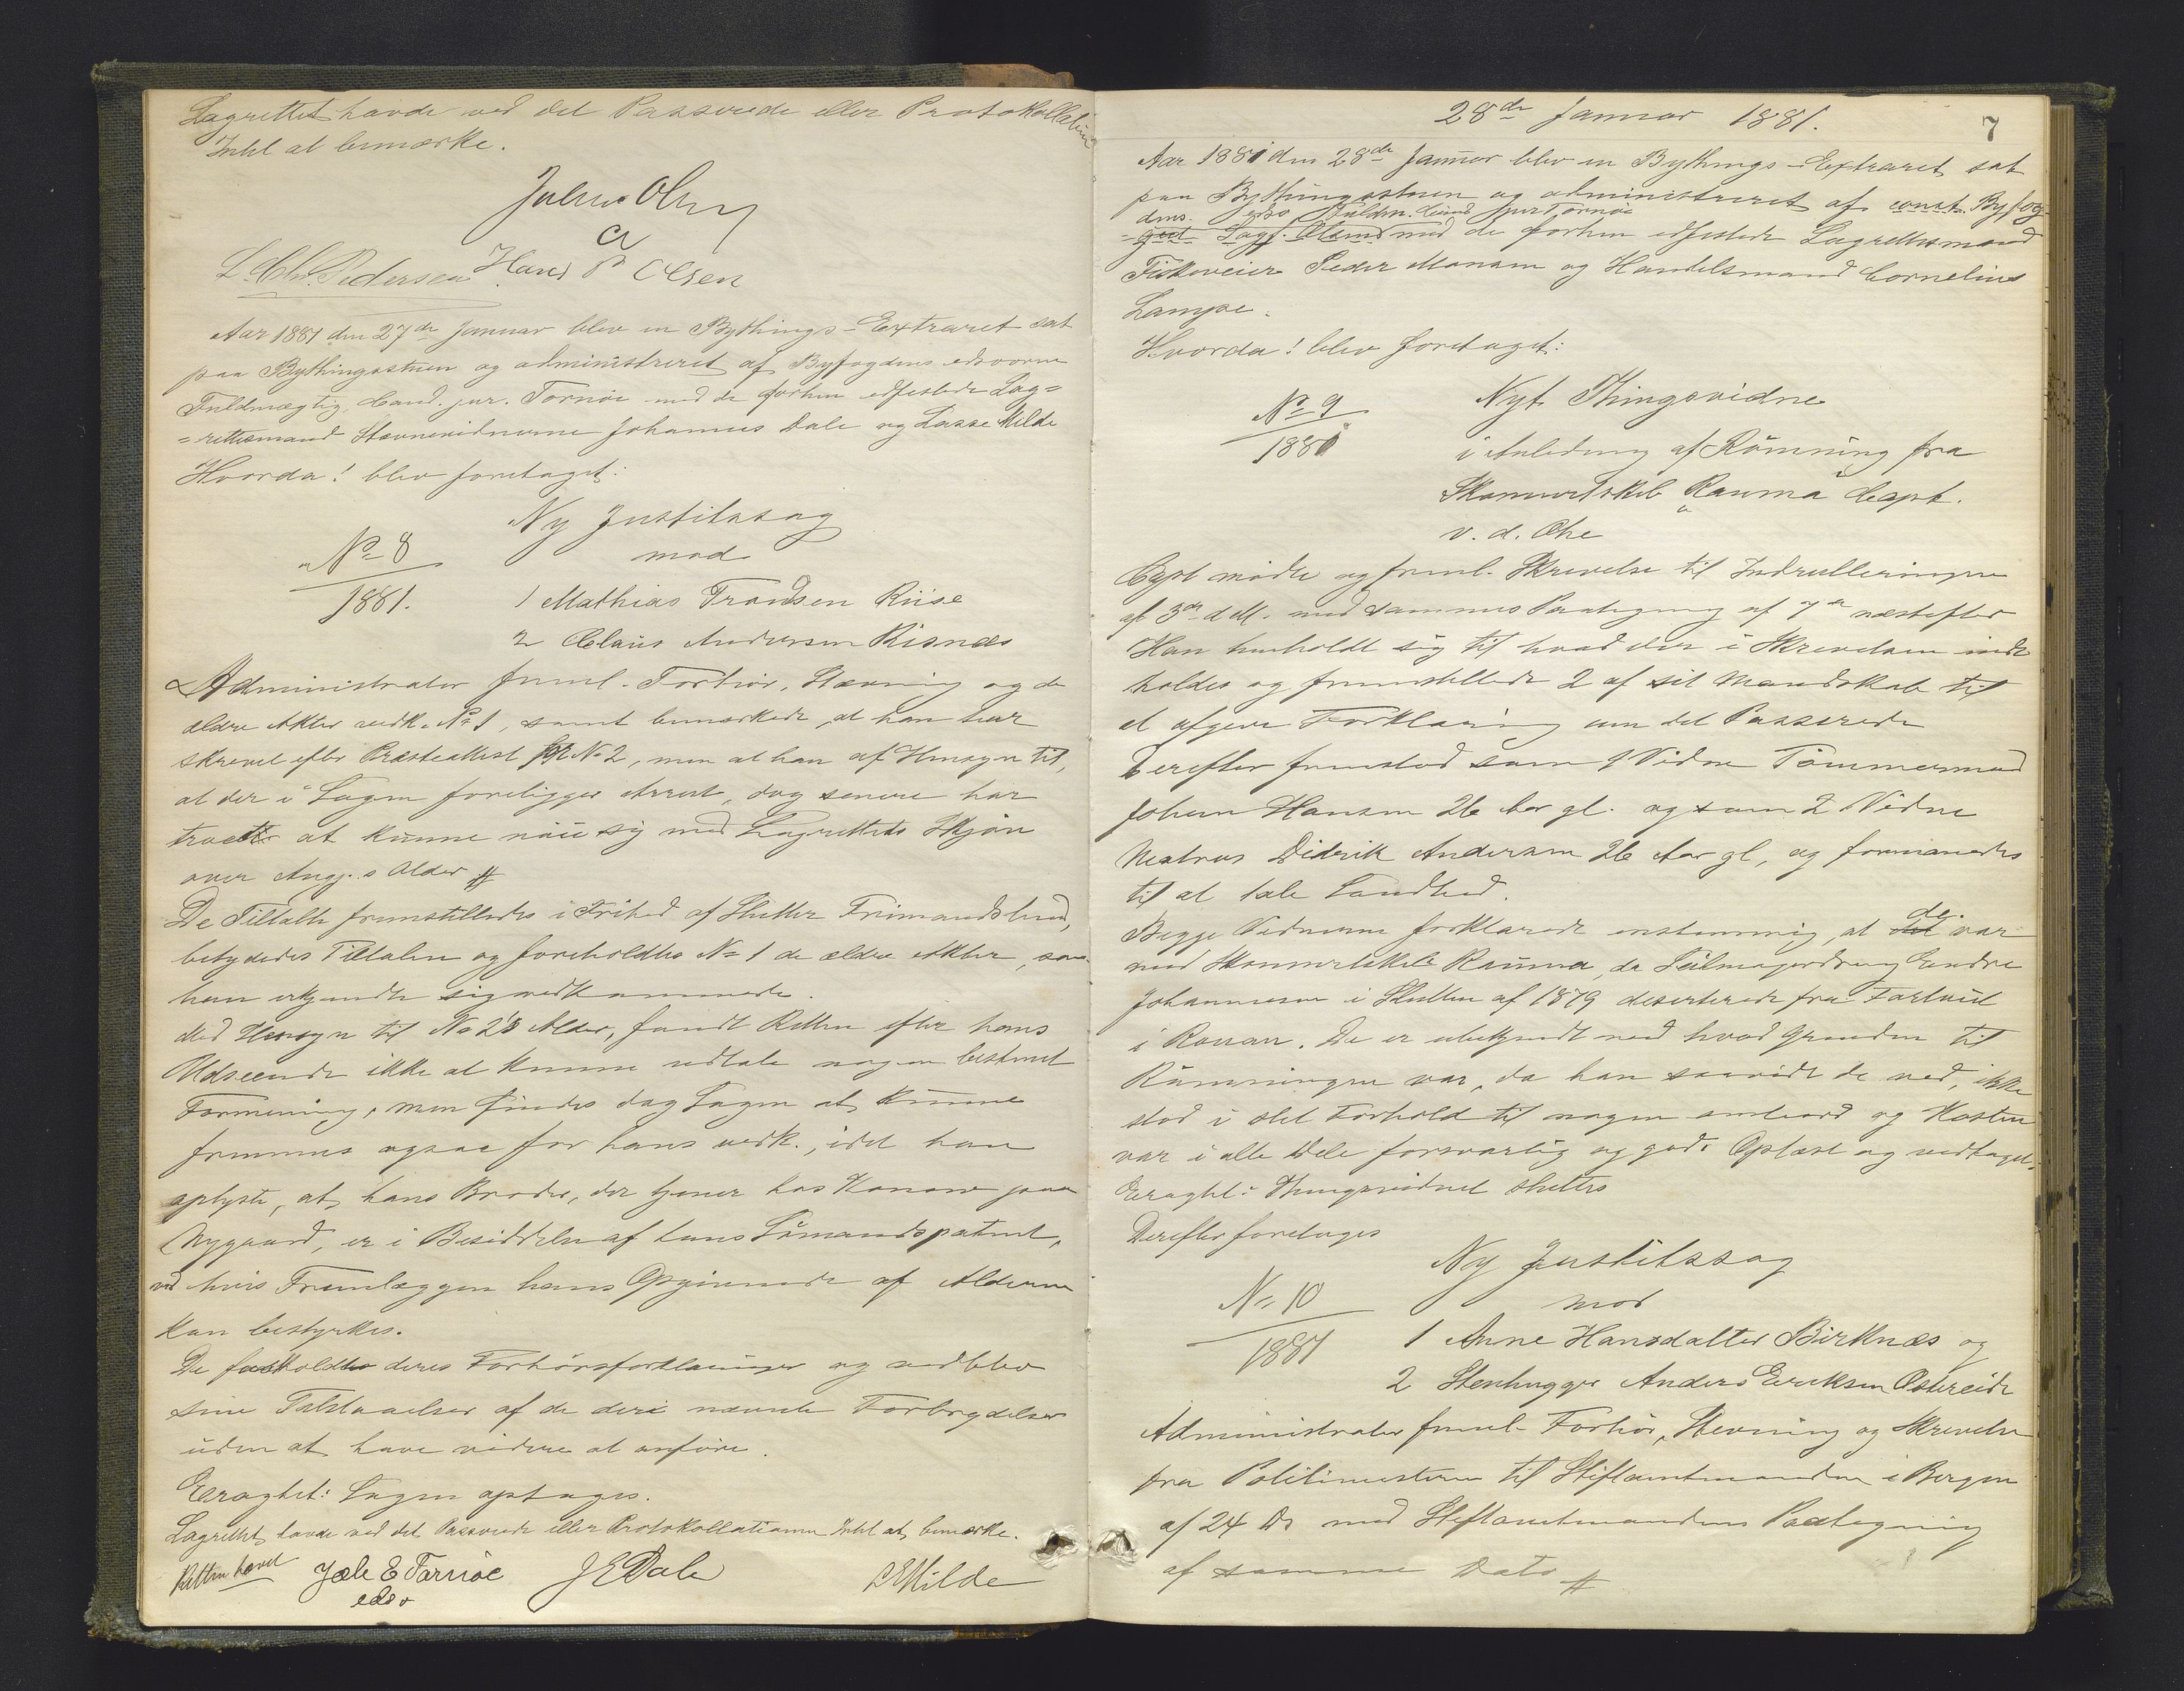 Lagrettet havde ved det Passerede eller Protokollationen
Intet at bemærke.
Julius Olsen
L. Chr. Pedersen Hans P Olsen
Aar 1881 den 27de Januar blev en Bythings-Extraret sat
paa Bythingsstuen og administreret af Byfogdens edsvorne
Fuldmægtig, Cand. jur. Tornöe med de forhen edfæstede Lag=
=rettesmænd Stevnevidnerne Johannes Dale og Lasse Milde
Hvorda! blev foretaget:
Ny Justitssag
No 8
1881.
mod
1 Mathias Trondsen Riise
2 Claus Andersen Risnæs
Administrator freml. Forhör, Stævning og de
ældre Akter vedk. No 1, samt bemærkede, at han har
skrevet efter Præsteattest for No 2, men at han af Hensyn til,
at der i Sagen foreligger Arrest, dog senere har
troet at kunne nöie sig med Lagrettets Skjön
over Angj.s Alder #
De Tiltalte fremstilledes i Frihed af Slutter Frimandslund,
betydedes Tiltalen og foreholdtes No 1 de ældre Akter, som
han erkjendte sigvedkommende.
Med Hensyn til No 2's Alder, fandt Retten efter hans
Udseende ikke at kunne udtale nogen bestemt
Formening, men findes dog Sagen at kunne
fremmes ogsaa for hans vedk., idet han
oplyste, at hans Broder, der tjener hos Konow paa
Nygaard, er i Besiddelse af hans Sömandspatent,
ved hvis Fremlæggen hans Opgivende af Alderen
kan bestyrkes.
De foreholdtes deres Forhörsforklaringer og vedblev
sine Tilstaaelser af de deri nævnte Forbrydelser
uden at have videre at anföre.
Eragtet: Sagen optages.
Lagrettet havde ved det Passerede eller Protokollationen Intet at bemærke.
Retten hævet Joh E Tornöe J E Dale L E Milde
edsv
28de Januar 1881.
7
Aar 1881 den 28de Januar blev en Bythings-Extraret sat
paa Bythingsstuen og administreret af const. Byfog-
dens edsv Fuldm. Cand jur Tornöe
=ged Sagf. Olsen med de forhen edfæstede Lagrettesmænd
Fiskeveier Peder Monsen og Handelsmand Cornelius
Lampe.
Hvorda! blev foretaget:
No 9
1881
Nyt Thingsvidne
i Anledning af Römning fra
Skonnertskib "Rauma" Capt.
v. d. Ohe
Capt mödte og freml. Skrivelse til Indrulleringen
af 3de d M. med sammes Paategning af 7de næstefter
Han henholdt sig til hvad der i Skrivelsen inde
holdes og fremstillede 2 af sit Mandskab til
at afgive Forklaring om det Passerede
Derefter fremstod som 1 Vidne Tömmermand
Johan Hansen 26 Aar gl. og som 2 Vidne
Matros Didrik Andersen 26 Aar gl, og formanedes
til at tale Sandhed.
Begge Vidnerne forklarede enstemmig, at det de var
med Skonnertskib Rauma, da Seilmagerdreng Endre
Johannesen i Slutten af 1879 deserterede fra Fartöiet
i Rouen. De er ubekjendt med hvad Grunden til
Römningen var, da han saavidt de ved, ikke
stod i slet Forhold til nogen ombord og Kosten
var i alle Dele forsvarlig og god. Oplæst og vedtaget.
Eragtet: Thingsvidnet sluttes
Derefter foretages
Ny Justitssag
No 10
1881
mod
1 Anne Hansdatter Birknæs og
2 Stenhugger Anders Eriksen Ostereide
Administrator freml Forhör, Stevning og Skrivelse
fra Politimesteren til Stiftamtmanden i Bergen
af 24 Ds med Stiftamtmandens Paategning
af samme Dato #